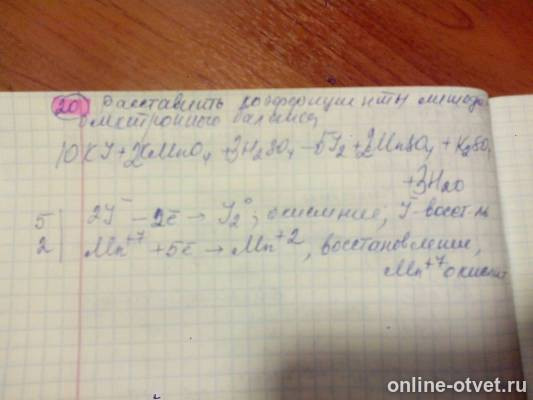 20. Расставить коэффициенты методом
электронного баланса
10KI + 2KMnO₄ + 3H₂SO₄ → 5I₂ + 2MnSO₄ + K₂SO₄
+ 3H₂O
5 | 2I⁻ - 2ē → I₂⁰, окисление, I⁻ восст-ль
2 | Mn⁺⁷ + 5ē → Mn⁺², восстановление,
Mn⁺⁷ окислит
online-otvet.ru